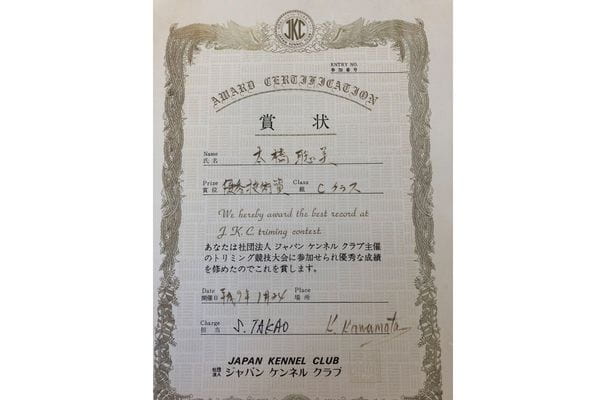 JKC
JAPAN KENNEL CLUB
ENTRY NO.
参加番号
AWARD CERTIFICATION
賞 状
Name
氏名 橋 聡美
Prize 優秀技術賞 Class Cクラス
賞位 組
We hereby award the best record at
J. K. C triming contest.
あなたは社団法人 ジャパン ケンネル クラブ主催
のトリミング競技大会に参加せられ優秀な成績
を修めたのでこれを賞します。
Date Place
開催日 平成9年1月24 場所
Charge
担当 S. TAKAO K. Kawamota
JAPAN KENNEL CLUB
社団法人 ジャパン ケンネル クラブ